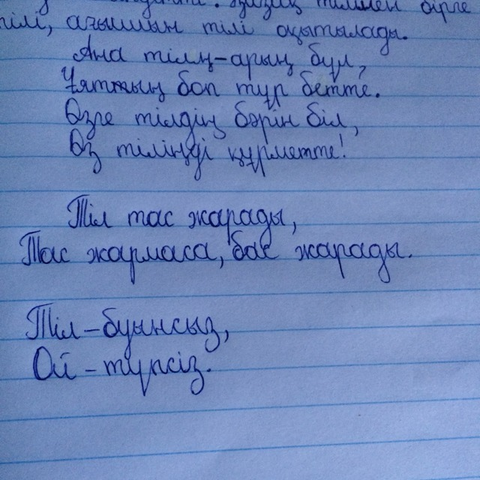 қазақ тілімен бірге
тілі, ағылшын тілі оқытылады.
Ана тілің-арың бұл,
Ұятың боп тұр бетте.
Өзге тілдің бәрін біл,
Өз тіліңді құрметте!
Тіл тас жарады,
Тас жармаса, бас жарады.
Тіл-буынсыз,
Ой-түпсіз.